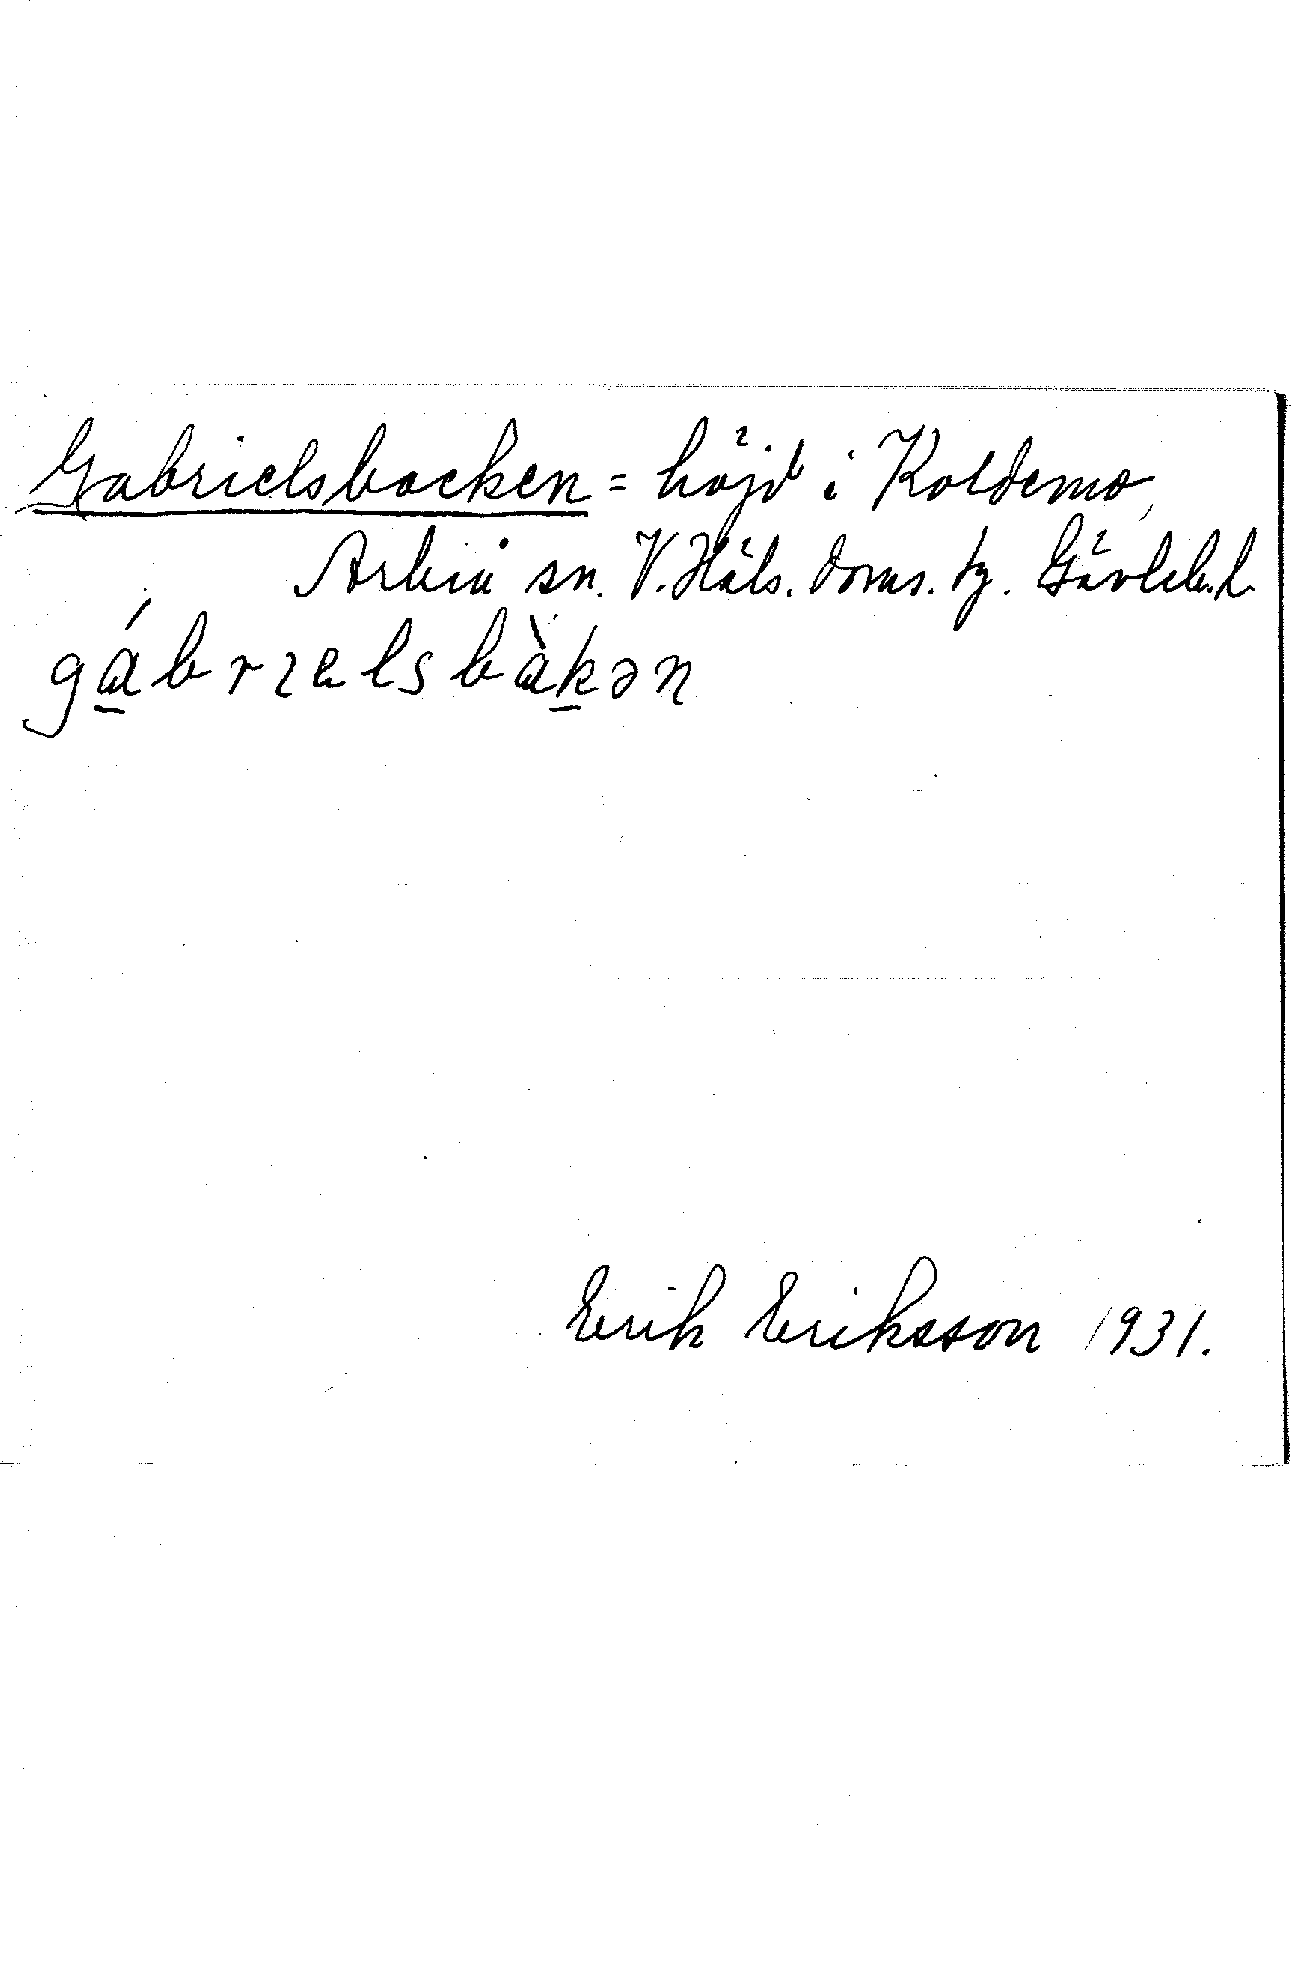 Gabrielsbacken = höjd i Koldemo,
Arbrå sn. V. Häls. doms. tg. Gävleb. l.
gábrɩelsbàkən
Erik Eriksson 1931.